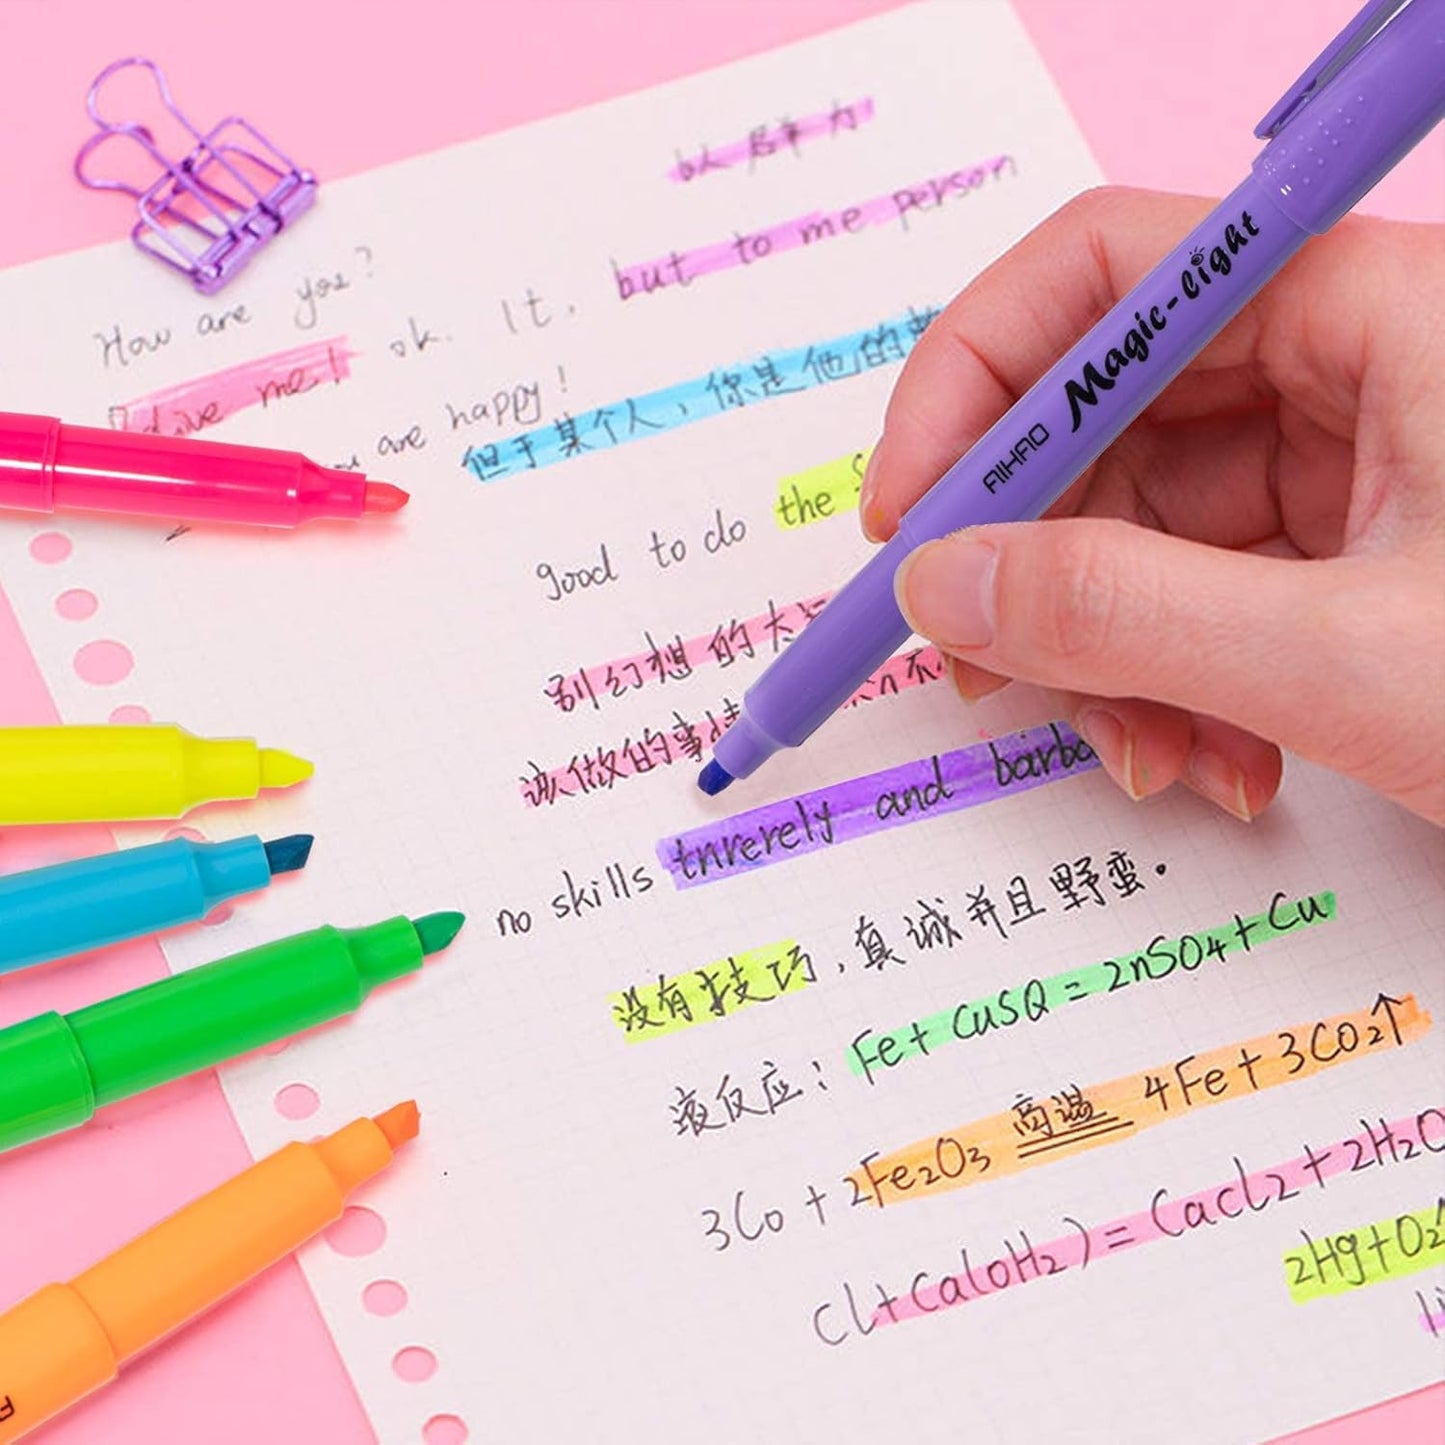 以群力
but to me person
How are you?
ok. It.
me!
are happy!
但于某个人，你是他的
good to do the
别幻想的太
该做的事情
no skills tnrerely and
没有技巧，真诚并且野蛮。
液反应：Fe+CuSO=2nSO4+Cu
3Co+2Fe₂O₃ 高温 4Fe+3CO₂↑
Cl+CaloH₂)=Cacl₂+2H₂O
2Hg+O₂↑
AIIHAO Magic-Light